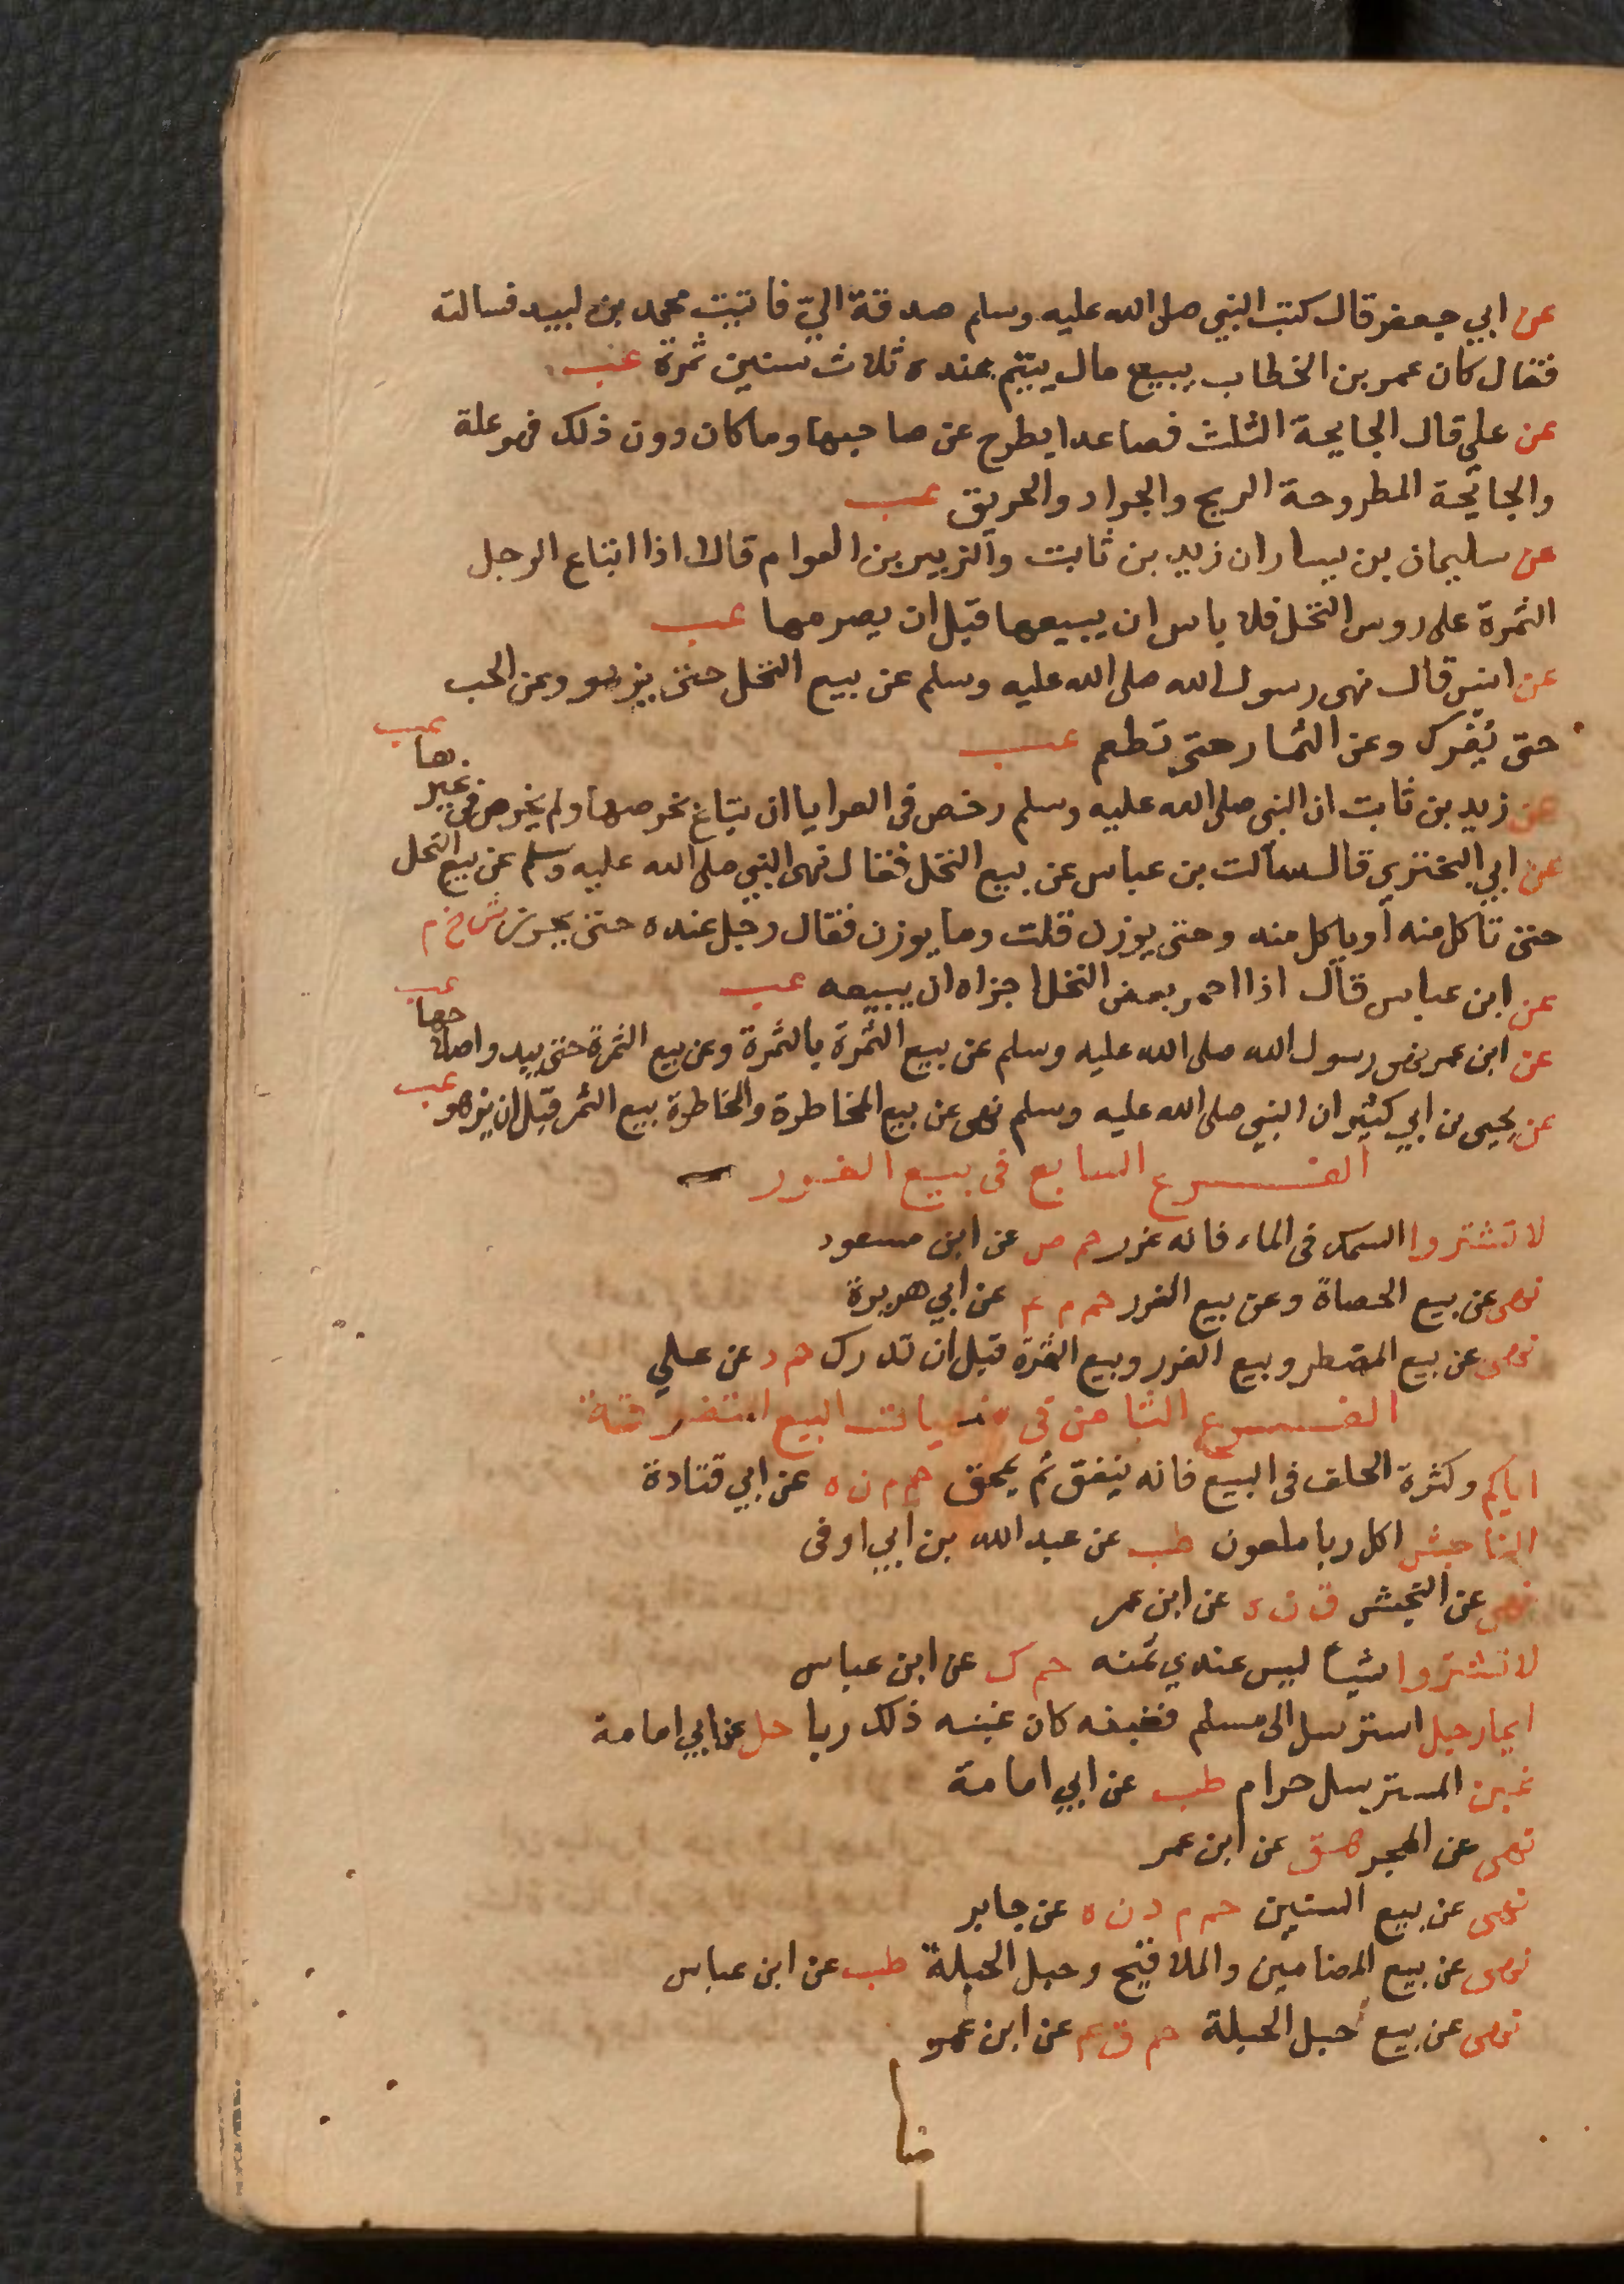 عن ابي جعفر قال كتب النبي صلى الله عليه وسلم صدقة الي فاتيت محمد بن لبيد فسالته
فقال كان عمر بن الخطاب يبيع مال يتيم عنده ثلاث سنين ثمرة عب
عن علي قال الجايحة الثلث فصاعدا يطرح عن صاحبها وما كان دون ذلك فهو علة
والجايحة المطروحة الريح والجراد والحريق عب
عن سليمان بن يسار ان زيد بن ثابت والزبير بن العوام قالا اذا ابتاع الرجل
الثمرة على روس النخل فلا باس ان يبيعها قبل ان يصرمها عب
عن انس قال نهى رسول الله صلى الله عليه وسلم عن بيع النخل حتى يزهو وعن الحب
حتى يُفرك وعن الثمار حتى تطعم عب
عن زيد بن ثابت ان النبي صلى الله عليه وسلم رخص في العرايا ان تباع بخرصها ولم يرخص في غيرها عب
عن ابي البختري قال سألت بن عباس عن بيع النخل فقال نهى النبي صلى الله عليه وسلم عن بيع النخل
حتى تاكل منه أو ياكل منه وحتى يوزن قلت وما يوزن فقال رجل عنده حتى يحرز ش خ م
عن ابن عباس قال اذا احمر بعض النخل اجزاه ان يبيعه عب
عن ابن عمر نهى رسول الله صلى الله عليه وسلم عن بيع الثمرة بالثمرة وعن بيع الثمرة حتى يبدو اصلاحها عب
عن يحيى بن ابي كثير ان النبي صلى الله عليه وسلم نهى عن بيع المخاطرة والمخاطرة بيع الثمر قبل ان يزهو عب
الفرع السابع في بيع الغرر
لا تشتروا السمك في الماء فانه غرر حم ص عن ابن مسعود
نهى عن بيع الحصاة وعن بيع الغرر حم م ع عن ابي هريرة
نهى عن بيع المضطر وبيع الغرر وبيع الثمرة قبل ان تدرك حم د عن علي
الفرع الثامن في منهيات البيع المتفرقة
اياكم وكثرة الحلف في البيع فانه ينفق ثم يمحق حم م ن ه عن ابي قتادة
الناجش اكل ربا ملعون طب عن عبد الله بن ابي اوفى
نهى عن النجش ق ن ه عن ابن عمر
لا تشتروا شيأ ليس عندي ثمنه حم ك عن ابن عباس
ايما رجل استرسل الى مسلم فغبنه كان غبنه ذلك ربا حل عن ابي امامة
غبن المسترسل حرام طب عن ابي امامة
نهى عن المجر هق عن ابن عمر
نهى عن بيع السنين حم م د ن ه عن جابر
نهى عن بيع المضامين والملاقيح وحبل الحبلة طب عن ابن عباس
نهى عن بيع حبل الحبلة حم ق ع عن ابن عمر